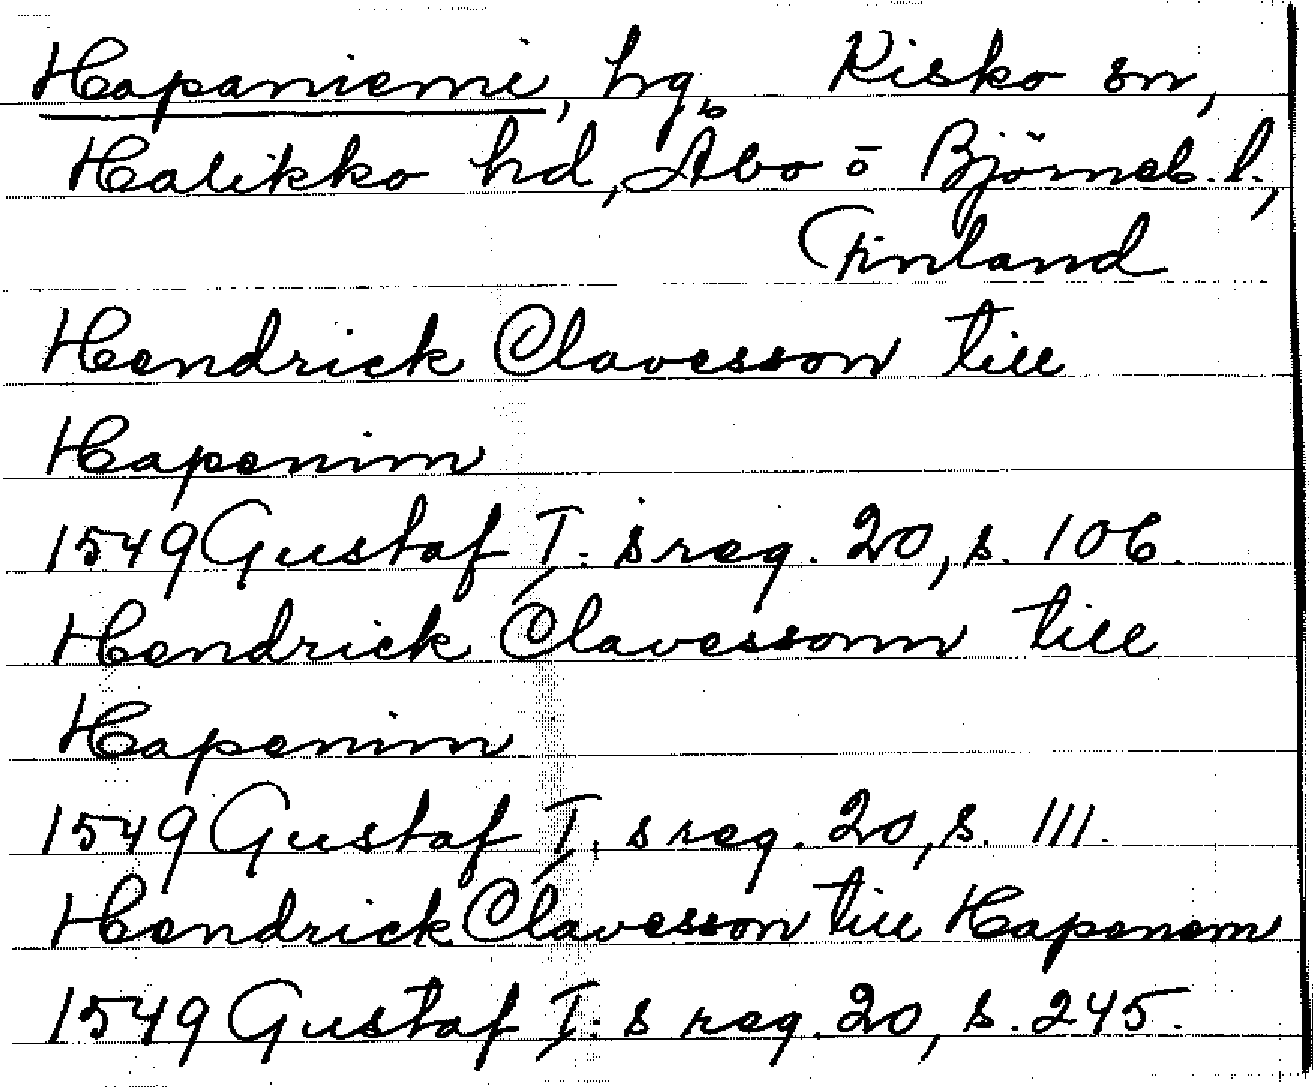 Hapaniemi, hg, Kisko sn,
Halikko hd, Åbo o Björneb. l.,
Finland
Hendrick Clavesson till
Hapenim
1549 Gustaf I:s reg. 20, s. 106.
Hendrick Clavessonn till
Hapenim
1549 Gustaf I:s reg. 20, s. 111.
Hendrick Clavesson till Hapenem
1549 Gustaf I:s reg. 20, s. 245.